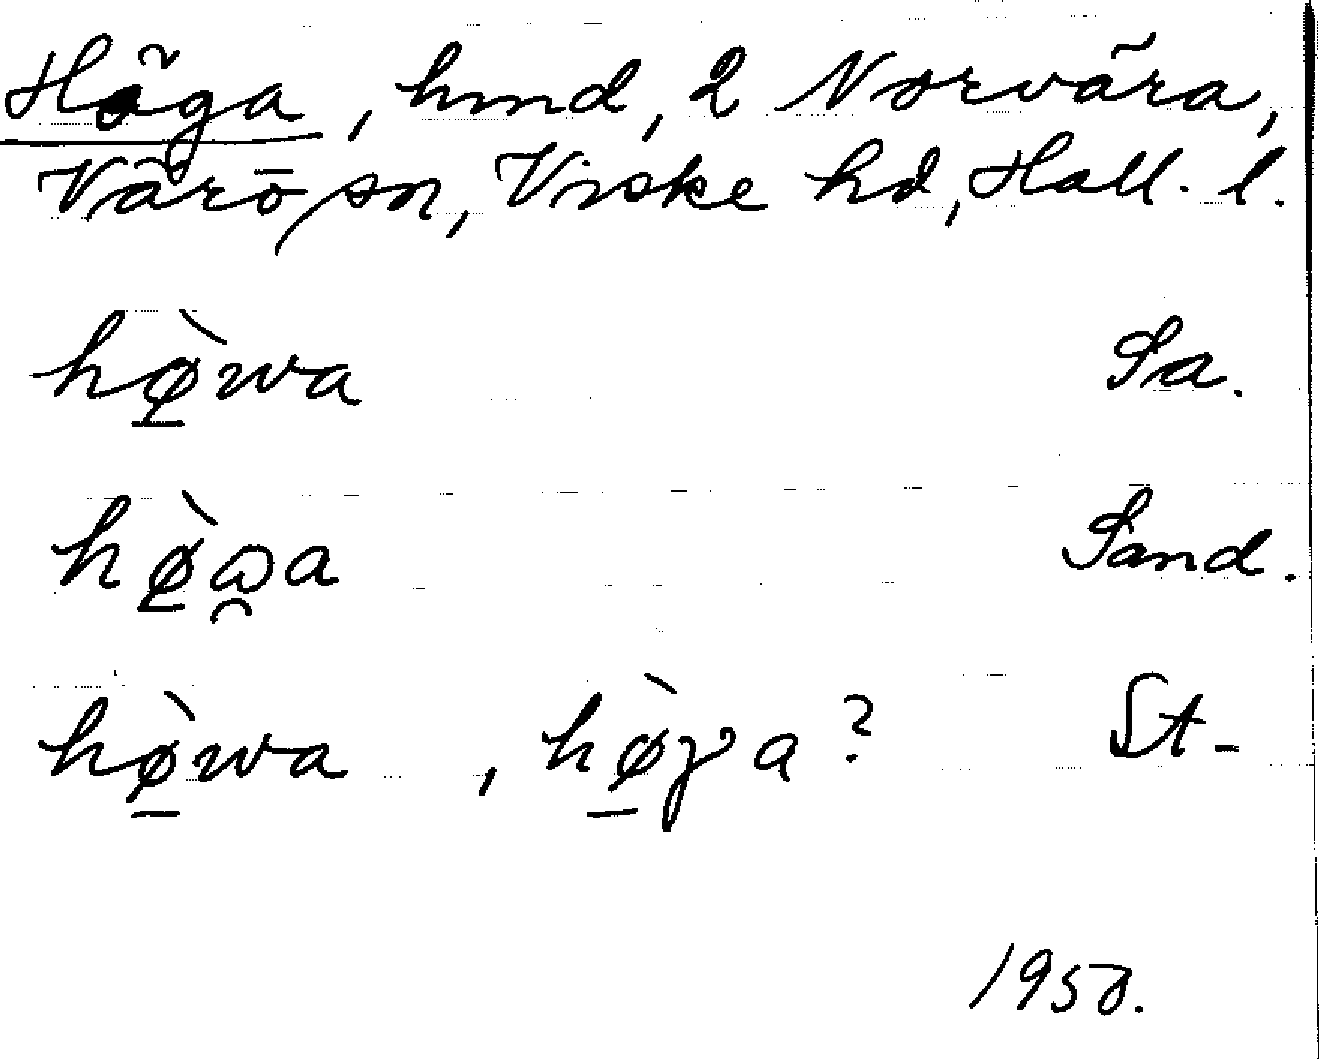 Höga, hmd, 2 Norvära,
Värö sn, Viske hd, Hall. l.
hø̱̀wa Sa.
hø̱̀ a Sand.
hø̱̀wa, hø̱̀ɣa? St.
1950.